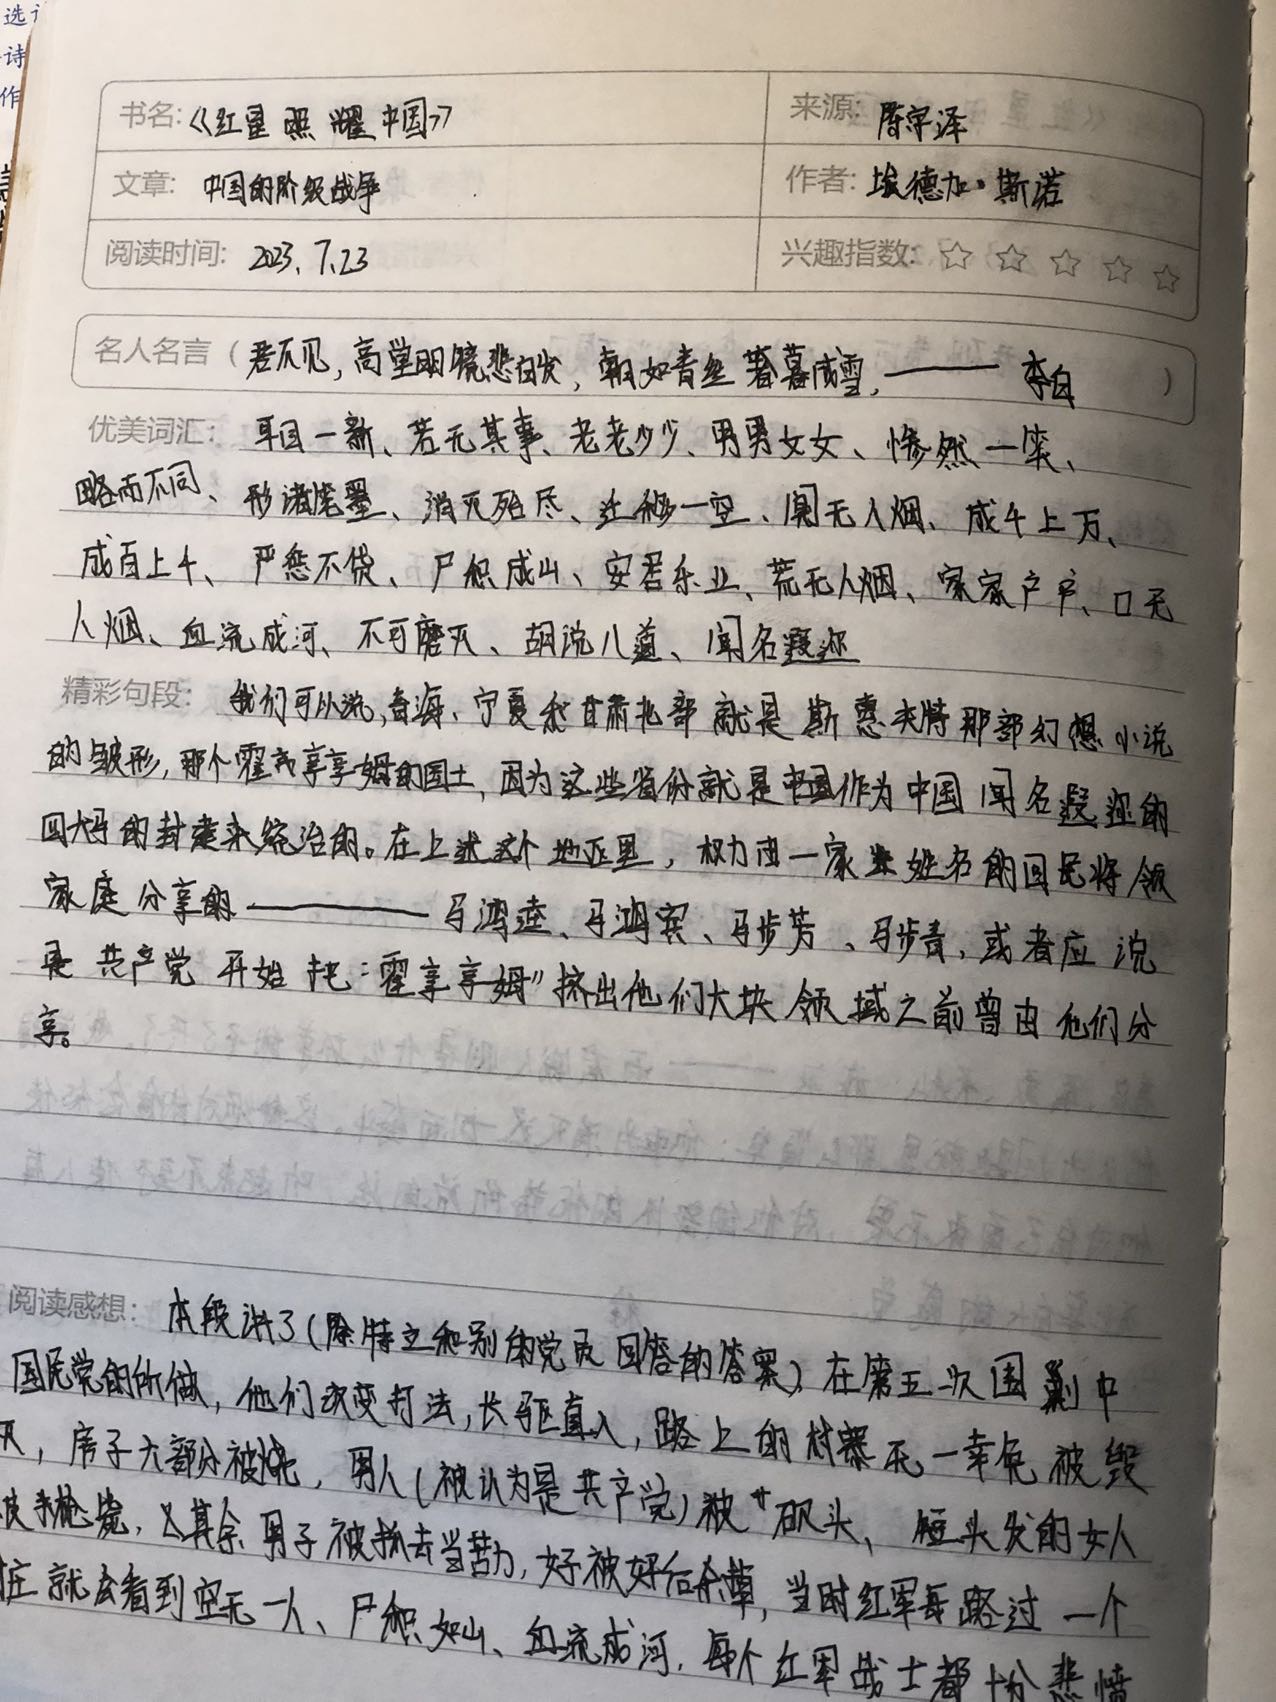 选
诗
作
书名:《红星照耀中国》
来源: 陈宇泽
文章: 中国的阶级战争
作者: 埃德加·斯诺
阅读时间: 2023.7.23
兴趣指数: ☆ ☆ ☆ ☆ ☆
名人名言（君不见,高堂明镜悲白发,朝如青丝暮成雪.—— 李白）
优美词汇: 耳目一新、若无其事、老老少少、男男女女、惨然一笑、
略而不同、形诸笔墨、消灭殆尽、迁移一空、闻无人烟、成千上万、
成百上千、严惩不贷、尸积成山、安君乐业、荒无人烟、家家户户、口无
人烟、血流成河、不可磨灭、胡说八道、闻名遐迩
精彩句段: 我们可以说,青海、宁夏和甘肃北部就是斯惠夫特那部幻想小说
的皱形,那个霍享享姆的国土,因为这些省份就是作为中国闻名遐迩的
四大马的封建来统治的。在上述这个地区里,权力由一家姓名的回民将领
家庭分享的——马鸿逵、马鸿宾、马步芳、马步青,或者应说
是共产党开始把“霍享享姆”挤出他们大块领域之前曾由他们分
享。
阅读感想: 本段讲了(除特立和别的党员回答的答案),在第五次围剿中
国民党的所做,他们改变打法,长驱直入,路上的村寨无一幸免被毁
灭,房子大部分被烧,男人(被认为是共产党)被“砍头、短头发的女人
被枪毙,其余男子被抓去当苦力,好被奸后杀,当时红军每路过一个
庄就会看到空无一人、尸积如山、血流成河,每个红军战士都十分悲愤